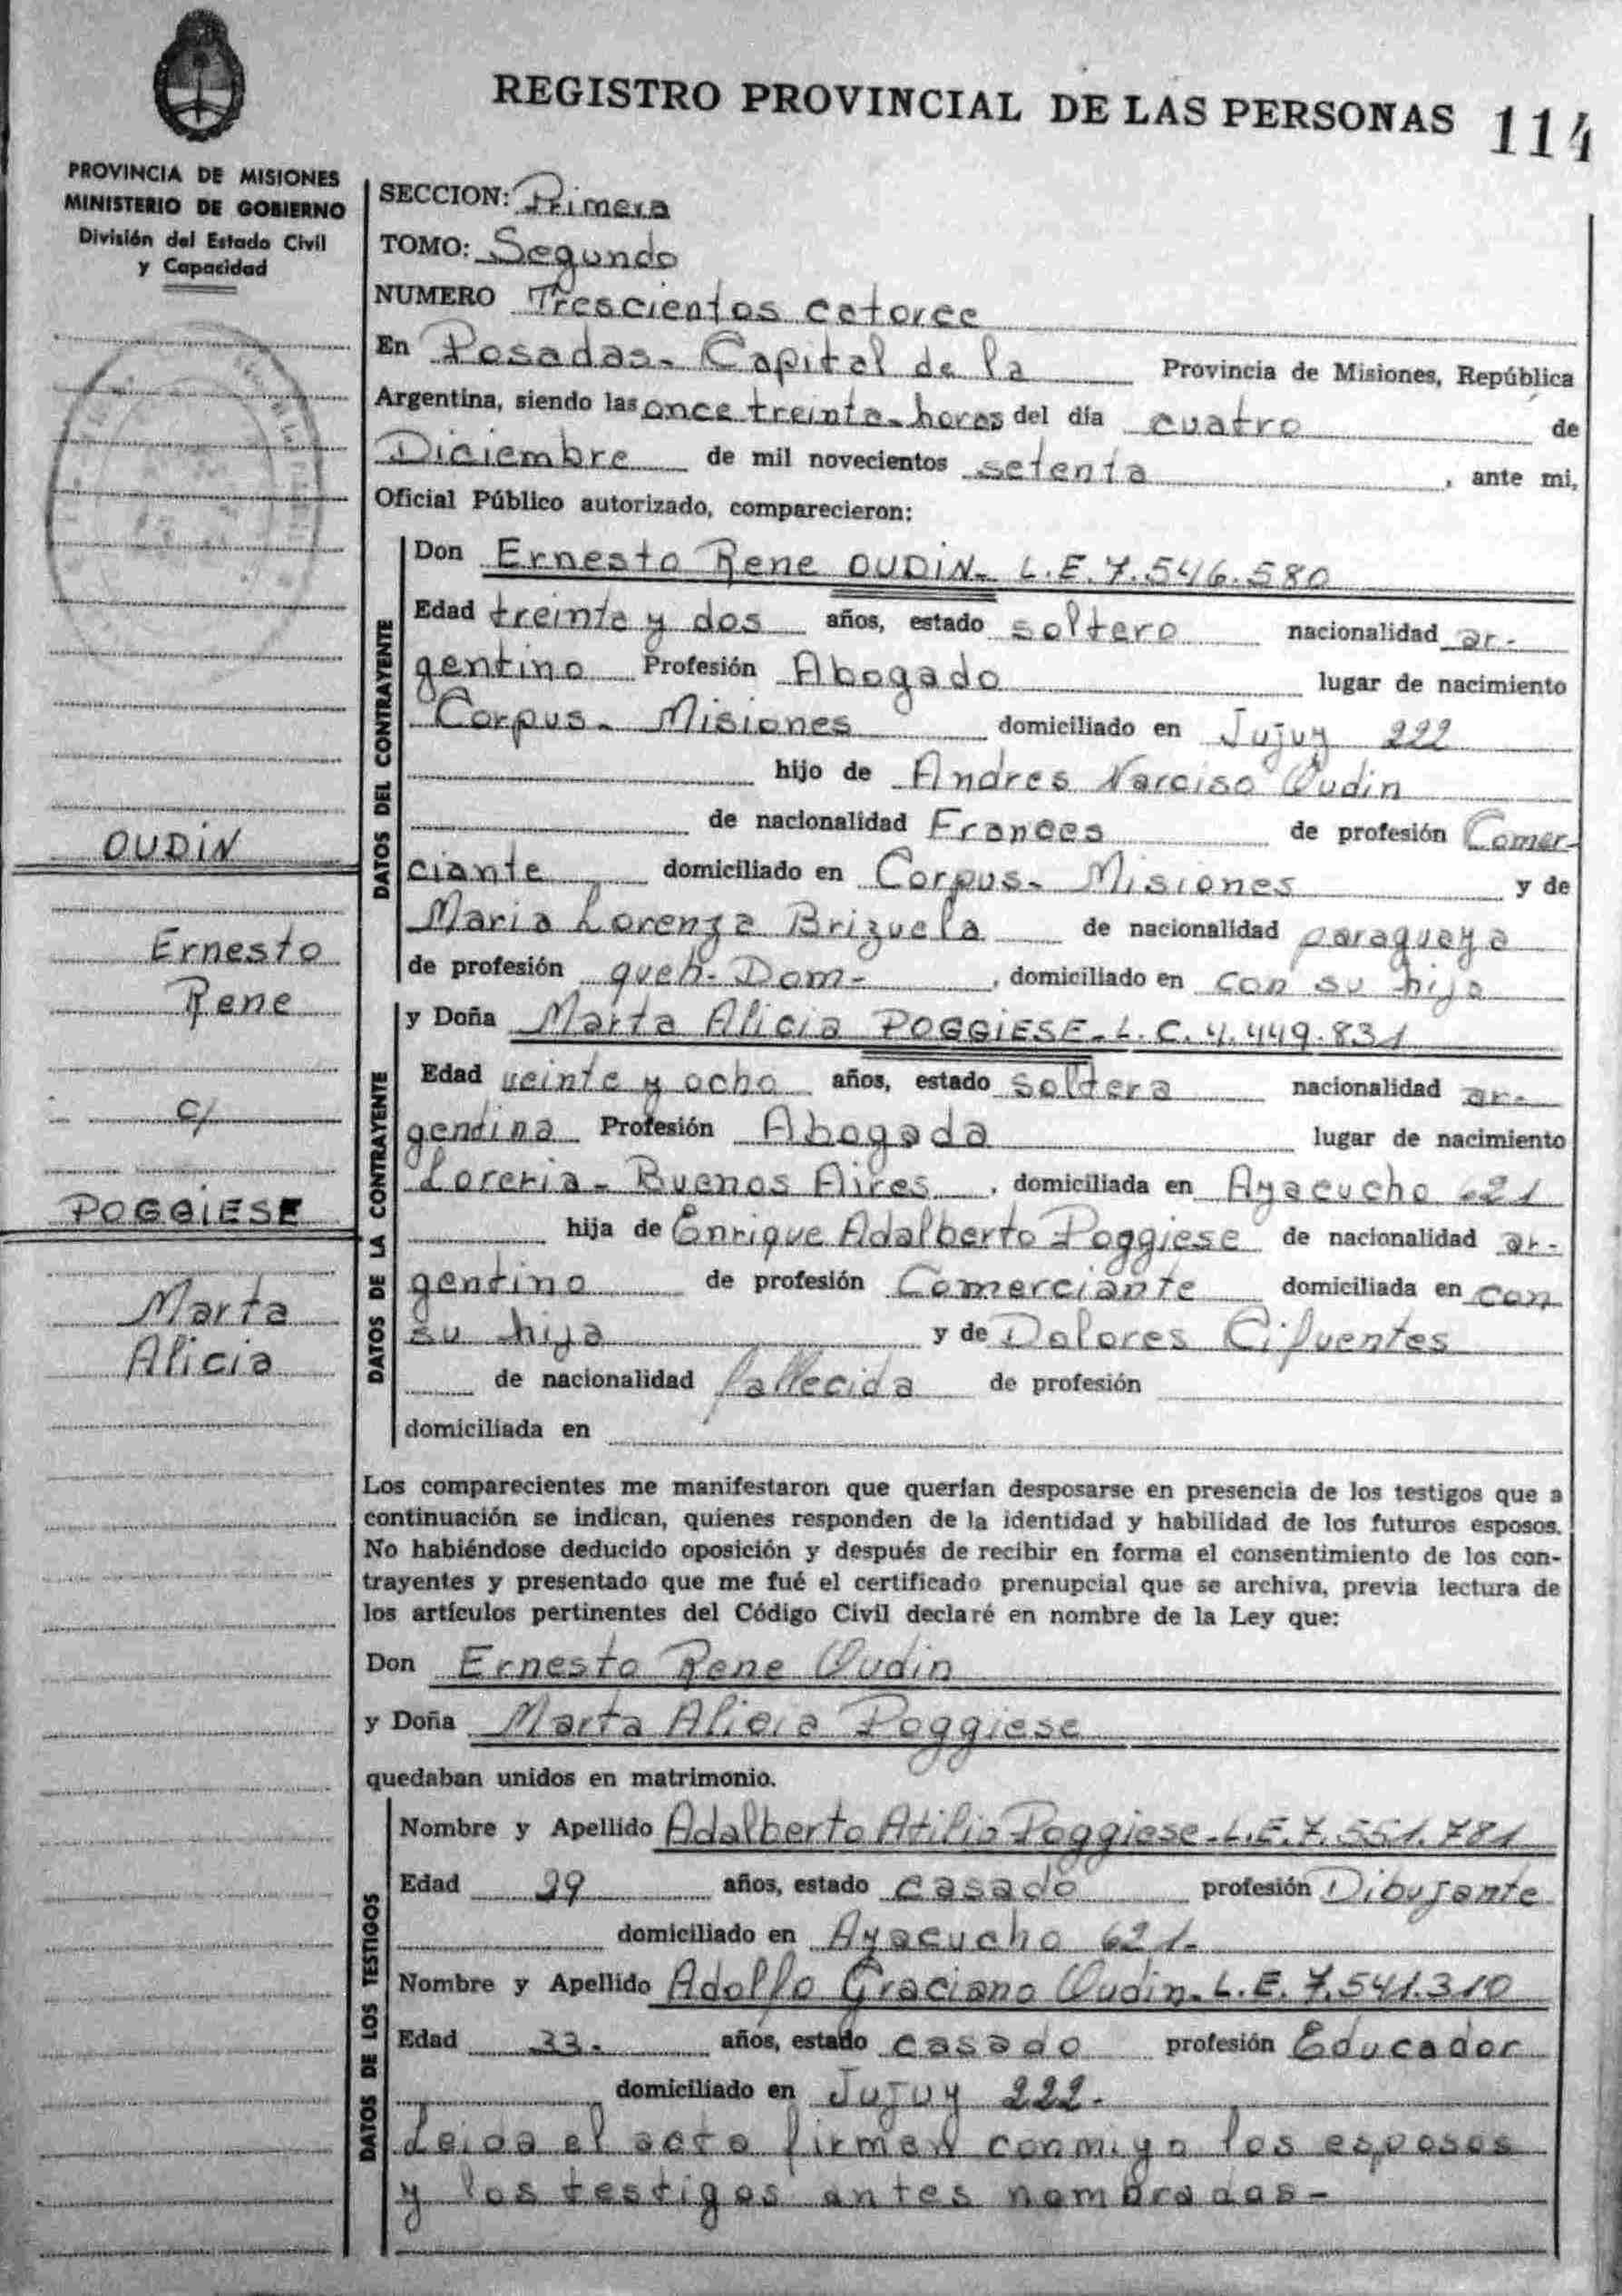 REGISTRO PROVINCIAL DE LAS PERSONAS 114
PROVINCIA DE MISIONES
MINISTERIO DE GOBIERNO
División del Estado Civil
y Capacidad
OUDIN
Ernesto
Rene
c/
POGGIESE
Marta
Alicia
SECCION: Primera
TOMO: Segundo
NUMERO Trescientos catorce
En Posadas- Capital de la Provincia de Misiones, República
Argentina, siendo las once treinta- horas del día cuatro de
Diciembre de mil novecientos setenta, ante mi,
Oficial Público autorizado, comparecieron:
DATOS DEL CONTRAYENTE
Don Ernesto Rene OUDIN- L.E. 7.546.580
Edad treinta y dos años, estado soltero nacionalidad ar-
gentino Profesión Abogado lugar de nacimiento
Corpus- Misiones domiciliado en Jujuy 222
hijo de Andres Narciso Oudin
de nacionalidad Frances de profesión Comer-
ciante domiciliado en Corpus- Misiones y de
Maria Lorenza Brizuela de nacionalidad paraguaya
de profesión queh- Dom-, domiciliado en con su hijo
DATOS DE LA CONTRAYENTE
y Doña Marta Alicia POGGIESE- L.C. 4.449.831
Edad veinte y ocho años, estado soltera nacionalidad ar-
gentina Profesión Abogada lugar de nacimiento
- Buenos Aires, domiciliada en Ayacucho 621
hija de Enrique Adalberto Poggiese de nacionalidad ar-
gentino de profesión Comerciante domiciliada en con
su hija y de Dolores Cifuentes
de nacionalidad fallecida de profesión
domiciliada en
Los comparecientes me manifestaron que querían desposarse en presencia de los testigos que a
continuación se indican, quienes responden de la identidad y habilidad de los futuros esposos.
No habiéndose deducido oposición y después de recibir en forma el consentimiento de los con-
trayentes y presentado que me fué el certificado prenupcial que se archiva, previa lectura de
los artículos pertinentes del Código Civil declaré en nombre de la Ley que:
Don Ernesto Rene Oudin
y Doña Marta Alicia Poggiese
quedaban unidos en matrimonio.
DATOS DE LOS TESTIGOS
Nombre y Apellido Adalberto Atilio Poggiese- L.E. 7.551.781
Edad 29 años, estado casado profesión Dibujante
domiciliado en Ayacucho 621-
Nombre y Apellido Adolfo Graciano Oudin- L.E. 7.541.310
Edad 33- años, estado casado profesión Educador
domiciliado en Jujuy 222-
Leida el acta firman conmigo los esposos
y los testigos antes nombrados-